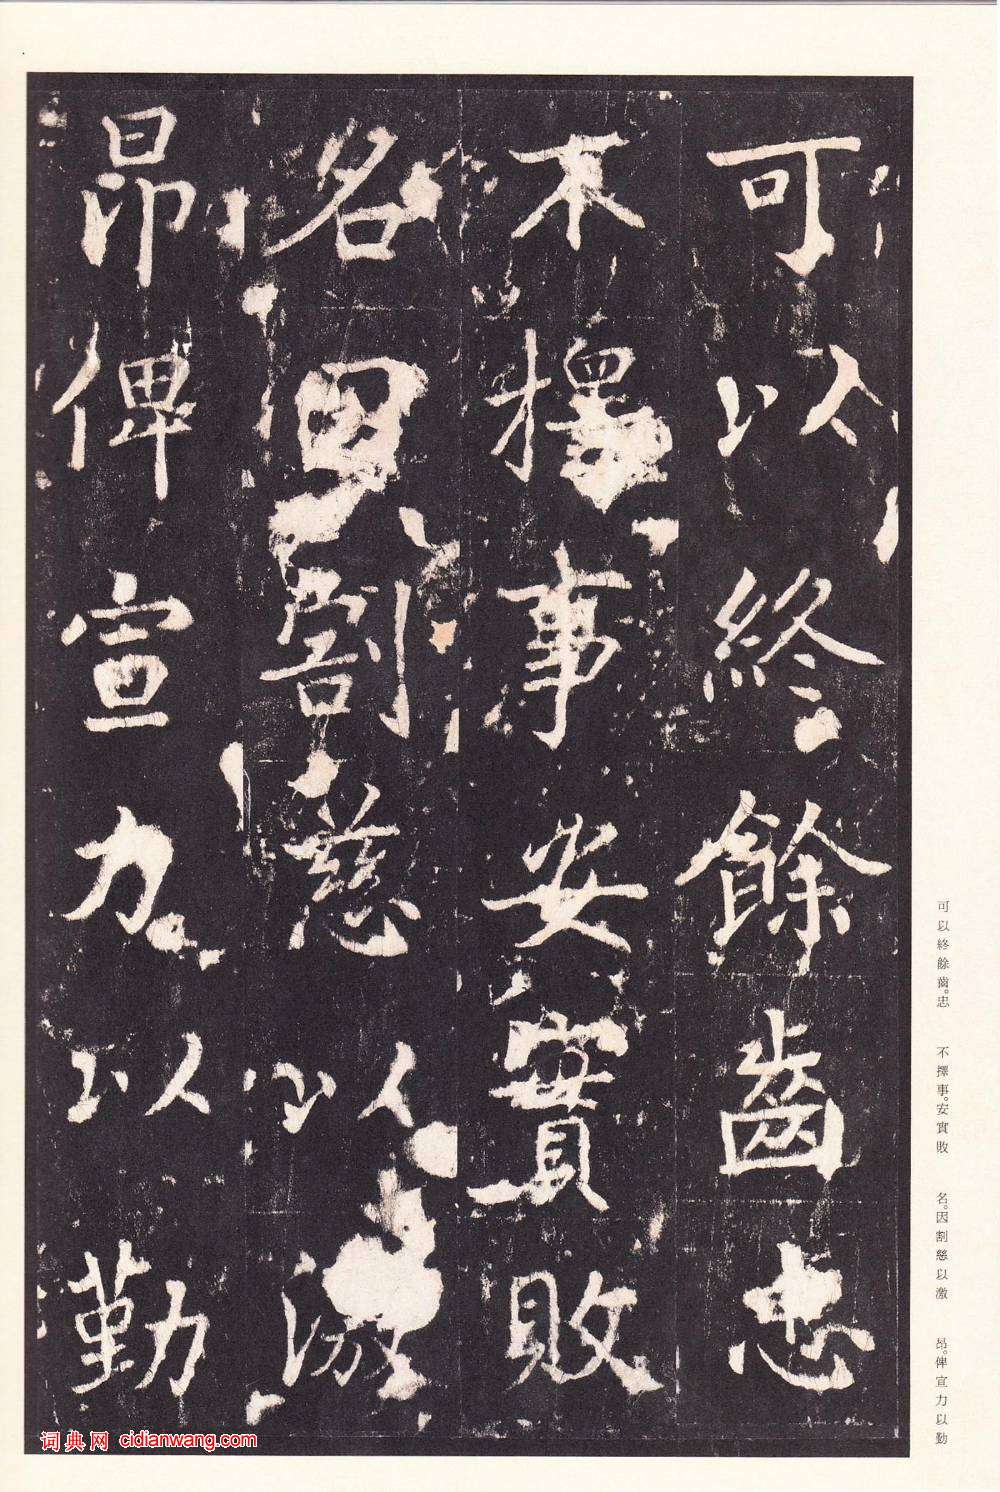 可以終餘齒忠
不擇事安實敗
名因割慈以激
昂俾宣力以勤
可以終餘齒。忠
不擇事。安實敗
名。因割慈以激
昂。俾宣力以勤
词典网 cidianwang.com